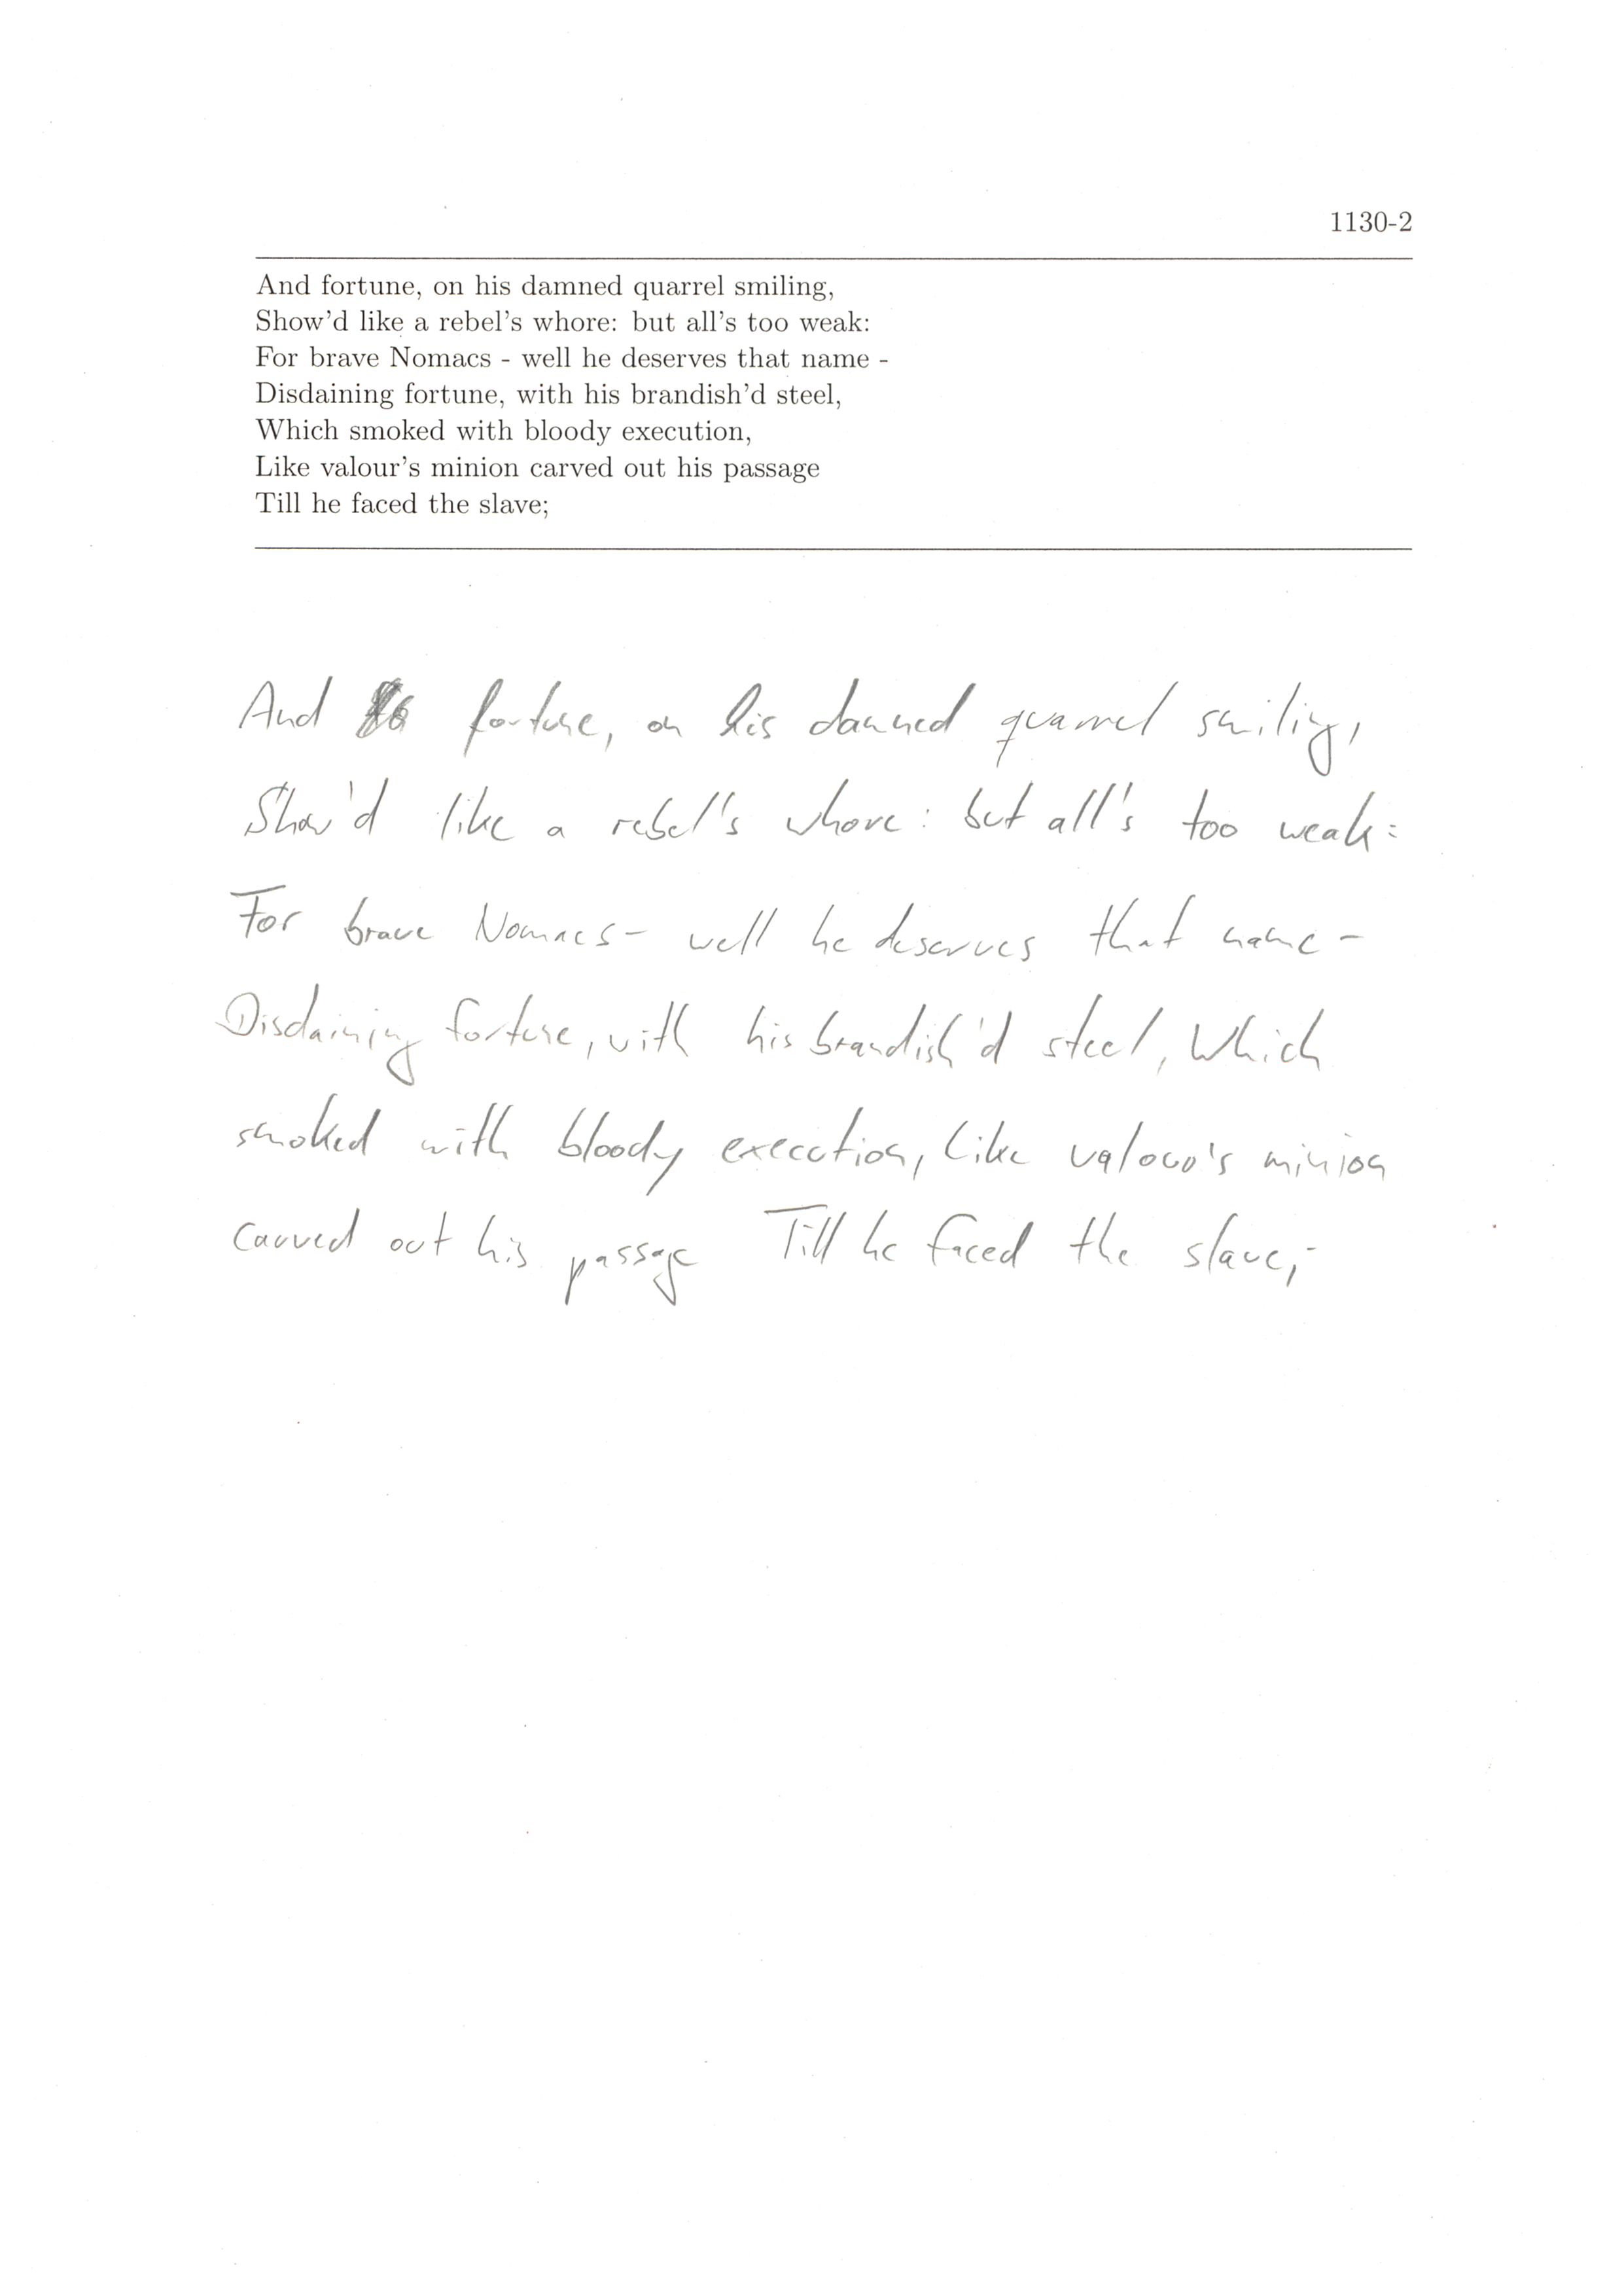 1130-2
And fortune, on his damned quarrel smiling,
Show'd like a rebel's whore: but all's too weak:
For brave Nomacs - well he deserves that name -
Disdaining fortune, with his brandish'd steel,
Which smoked with bloody execution,
Like valour's minion carved out his passage
Till he faced the slave;
And fortune, on his damned quarrel smiling,
Show'd like a rebel's whore: but all's too weak:
For brave Nomacs - well he deserves that name -
Disdaining fortune, with his brandish'd steel, Which
smoked with bloody execution, Like valour's minion
carved out his passage Till he faced the slave;